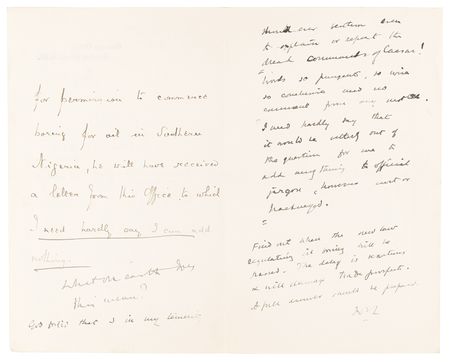 for permission to commence
boring for oil in Southern
Nigeria, he will have received
a letter from this Office to which
I need hardly say I can add
nothing.
What on earth does
this mean?
God forbid that I in my
should ever venture even
to explain or repeat the
dread commands of Caesar!
Words so pungent, so wise
so conclusive need no
comment from any
"I need hardly say that
it would be utterly out of
the question for me to
add anything to official
jargon, however curt or
hackneyed.
"
Find out when the new law
regulating oil mining will be
passed. The delay is
& will damage trade prospects.
A full minute should be prepared